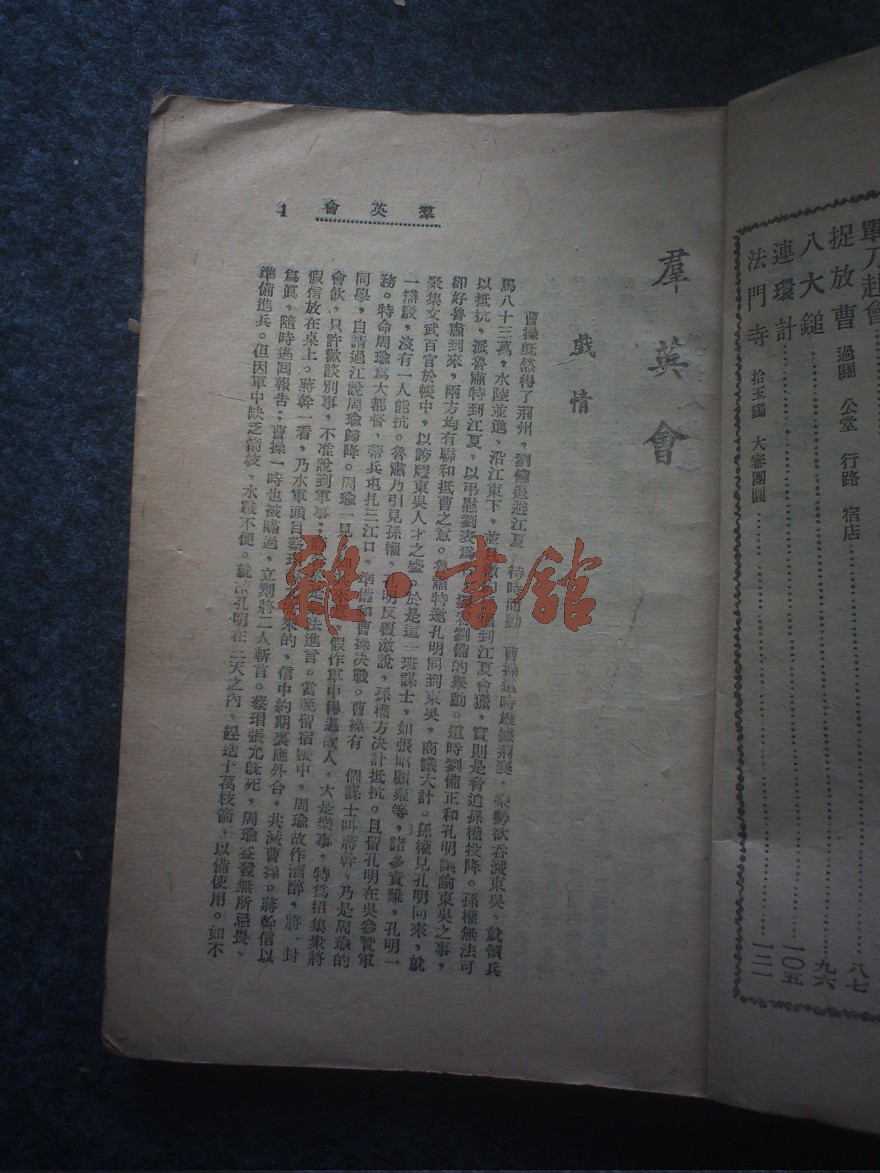 單刀赴會
捉放曹 過關 公堂 行路 宿店 八七
八大鎚 九六
連環計 一〇五
法門寺 拾玉鐲 大審團圓 一二一
羣英會 1
羣英會
戲情
曹操旣然得了荊州，劉備退避江夏，待時而動，曹操這時雄據荊襄，乘勢欲吞滅東吳，就領兵
馬八十三萬，水陸並進，沿江東下，並 到江夏會獵，實則是脅迫孫權投降。孫權無法可
以抵抗，派魯肅特到江夏，以弔慰劉表爲 劉備的舉動。這時劉備正和孔明議論東吳之事，
卻好魯肅到來，兩方均有聯和抵曹之意。魯肅特邀孔明同到東吳，商議大計。孫權見孔明同來，就
聚集文武百官於帳中，以誇耀東吳人才之盛。於是這一班謀士，如張昭顧雍等，諸多責難，孔明一
一議駁，沒有一人能抗。魯肅乃引見孫權， 明反覆激說，孫權方決計抵抗。且留孔明在吳參贊軍
務。特命周瑜爲大都督，帶兵屯扎三江口，準備和曹操決戰。曹操有 個謀士叫蔣幹，乃是周瑜的
同學，自請過江說周瑜歸降。周瑜一見 假作軍中得遇故人，大是樂事，特爲招集衆將
會飲，只許歡談別事，不准說到軍事； 法進言。當晚留宿帳中，周瑜故作酒醉，將 封
假信放在桌上。蔣幹一看，乃水軍頭目蔡瑁 來的，信中約期裏應外合，共滅曹操。蔣幹信以
爲眞，隨時逃回報告；曹操一時也被瞞過，立刻將二人斬首。蔡瑁張允旣死，周瑜益發無所忌畏，
準備進兵。但因軍中缺乏箭枝，水戰不便。就 孔明在三天之內，趕造十萬枝箭，以備使用。如不
雜·書舘